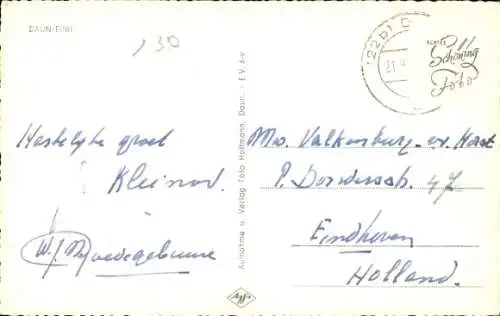 DAUN/EIFEL
130
Hartelijke groet
Kleinod.
Aufnahme u. Verlag Foto Hoffmann, Daun. - E.V. 6-v
(22b) D
21.
ECHTES
Schöning
Foto
Mw. Valkenburg - v. Horst
P. Dondersstr. 47
Eindhoven
Holland.